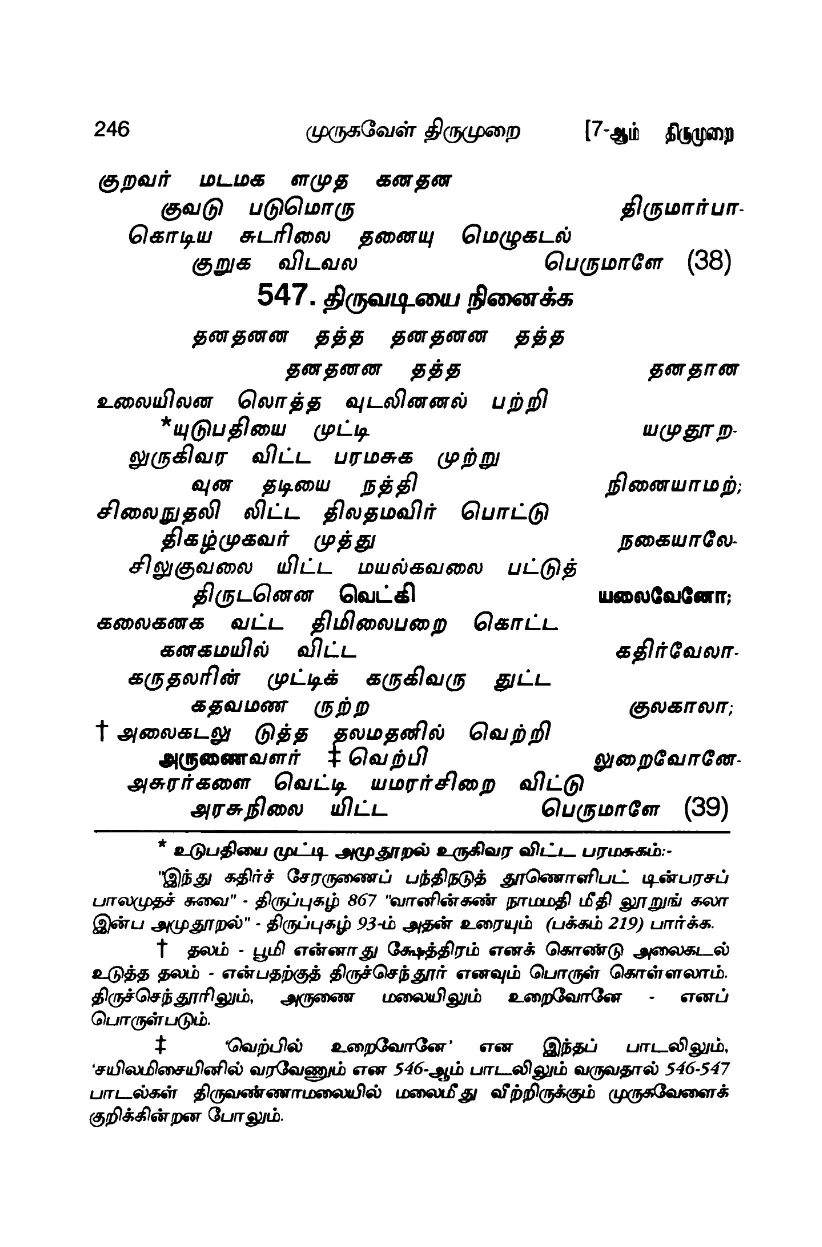 246 முருகவேள் திருமுறை [7-ஆம் திருமுறை
குறவர் மடமக ளமுத கனதன
குவடு படுமொரு திருமார்பா-
கொடிய சுடரிலை தனையு மெழுகடல்
குறுக விடவல பெருமாளே (38)
547. திருவடியை நினைக்க
தனதனன தத்த தனதனன தத்த
தனதனன தத்த தனதான
உலையிலன லொத்த வுடலினனல் பற்றி
*யுடுபதியை முட்டி யமுதூற-
லுருகிவர விட்ட பரமசுக முற்று
வுன தடியை நத்தி நினையாமற்;
சிலைநுதலி லிட்ட திலதமவிர் பொட்டு
திகழ்முகவர் முத்து நகையாலே-
சிலுகுவலை யிட்ட மயல்கவலை பட்டுத்
திருடனென வெட்கி யலைவேனோ;
கலைகனக வட்ட திமிலைபறை கொட்ட
கனகமயில் விட்ட கதிர்வேலா-
கருதலரின் முட்டிக் கருகிவரு துட்ட
கதவமண ருற்ற குலகாலா;
† அலைகடலு டுத்த தலமதனில் வெற்றி
அருணைவளர் ‡வெற்பி லுறைவோனே-
அசுரர்களை வெட்டி யமரர்சிறை விட்டு
அரசுநிலை யிட்ட பெருமாளே (39)
* உடுபதியை முட்டி அமுதூறல் உருகிவர விட்ட பரமசுகம்:-
"இந்து கதிர்ச் சேரருணைப் பந்திநடுத் தூணொளிபட் டின்பரசப்
பாலமுதச் சுவை" - திருப்புகழ் 867 "வானின்கண் நாமமதி மீதி லூறுங் கலா
இன்ப அமுதூறல்" - திருப்புகழ் 93-ம் அதன் உரையும் (பக்கம் 219) பார்க்க.
† தலம் - பூமி என்னாது க்ஷேத்திரம் எனக் கொண்டு அலைகடல்
உடுத்த தலம் - என்பதற்குத் திருச்செந்தூர் எனவும் பொருள் கொள்ளலாம்.
திருச்செந்தூரிலும், அருணை மலையிலும் உறைவோனே - எனப்
பொருள்படும்.
‡ 'வெற்பில் உறைவோனே' என இந்தப் பாடலிலும்,
'சயிலமிசையினில் வரவேணும் என 546-ஆம் பாடலிலும் வருவதால் 546-547
பாடல்கள் திருவண்ணாமலையில் மலைமீது வீற்றிருக்கும் முருகவேளைக்
குறிக்கின்றன போலும்.